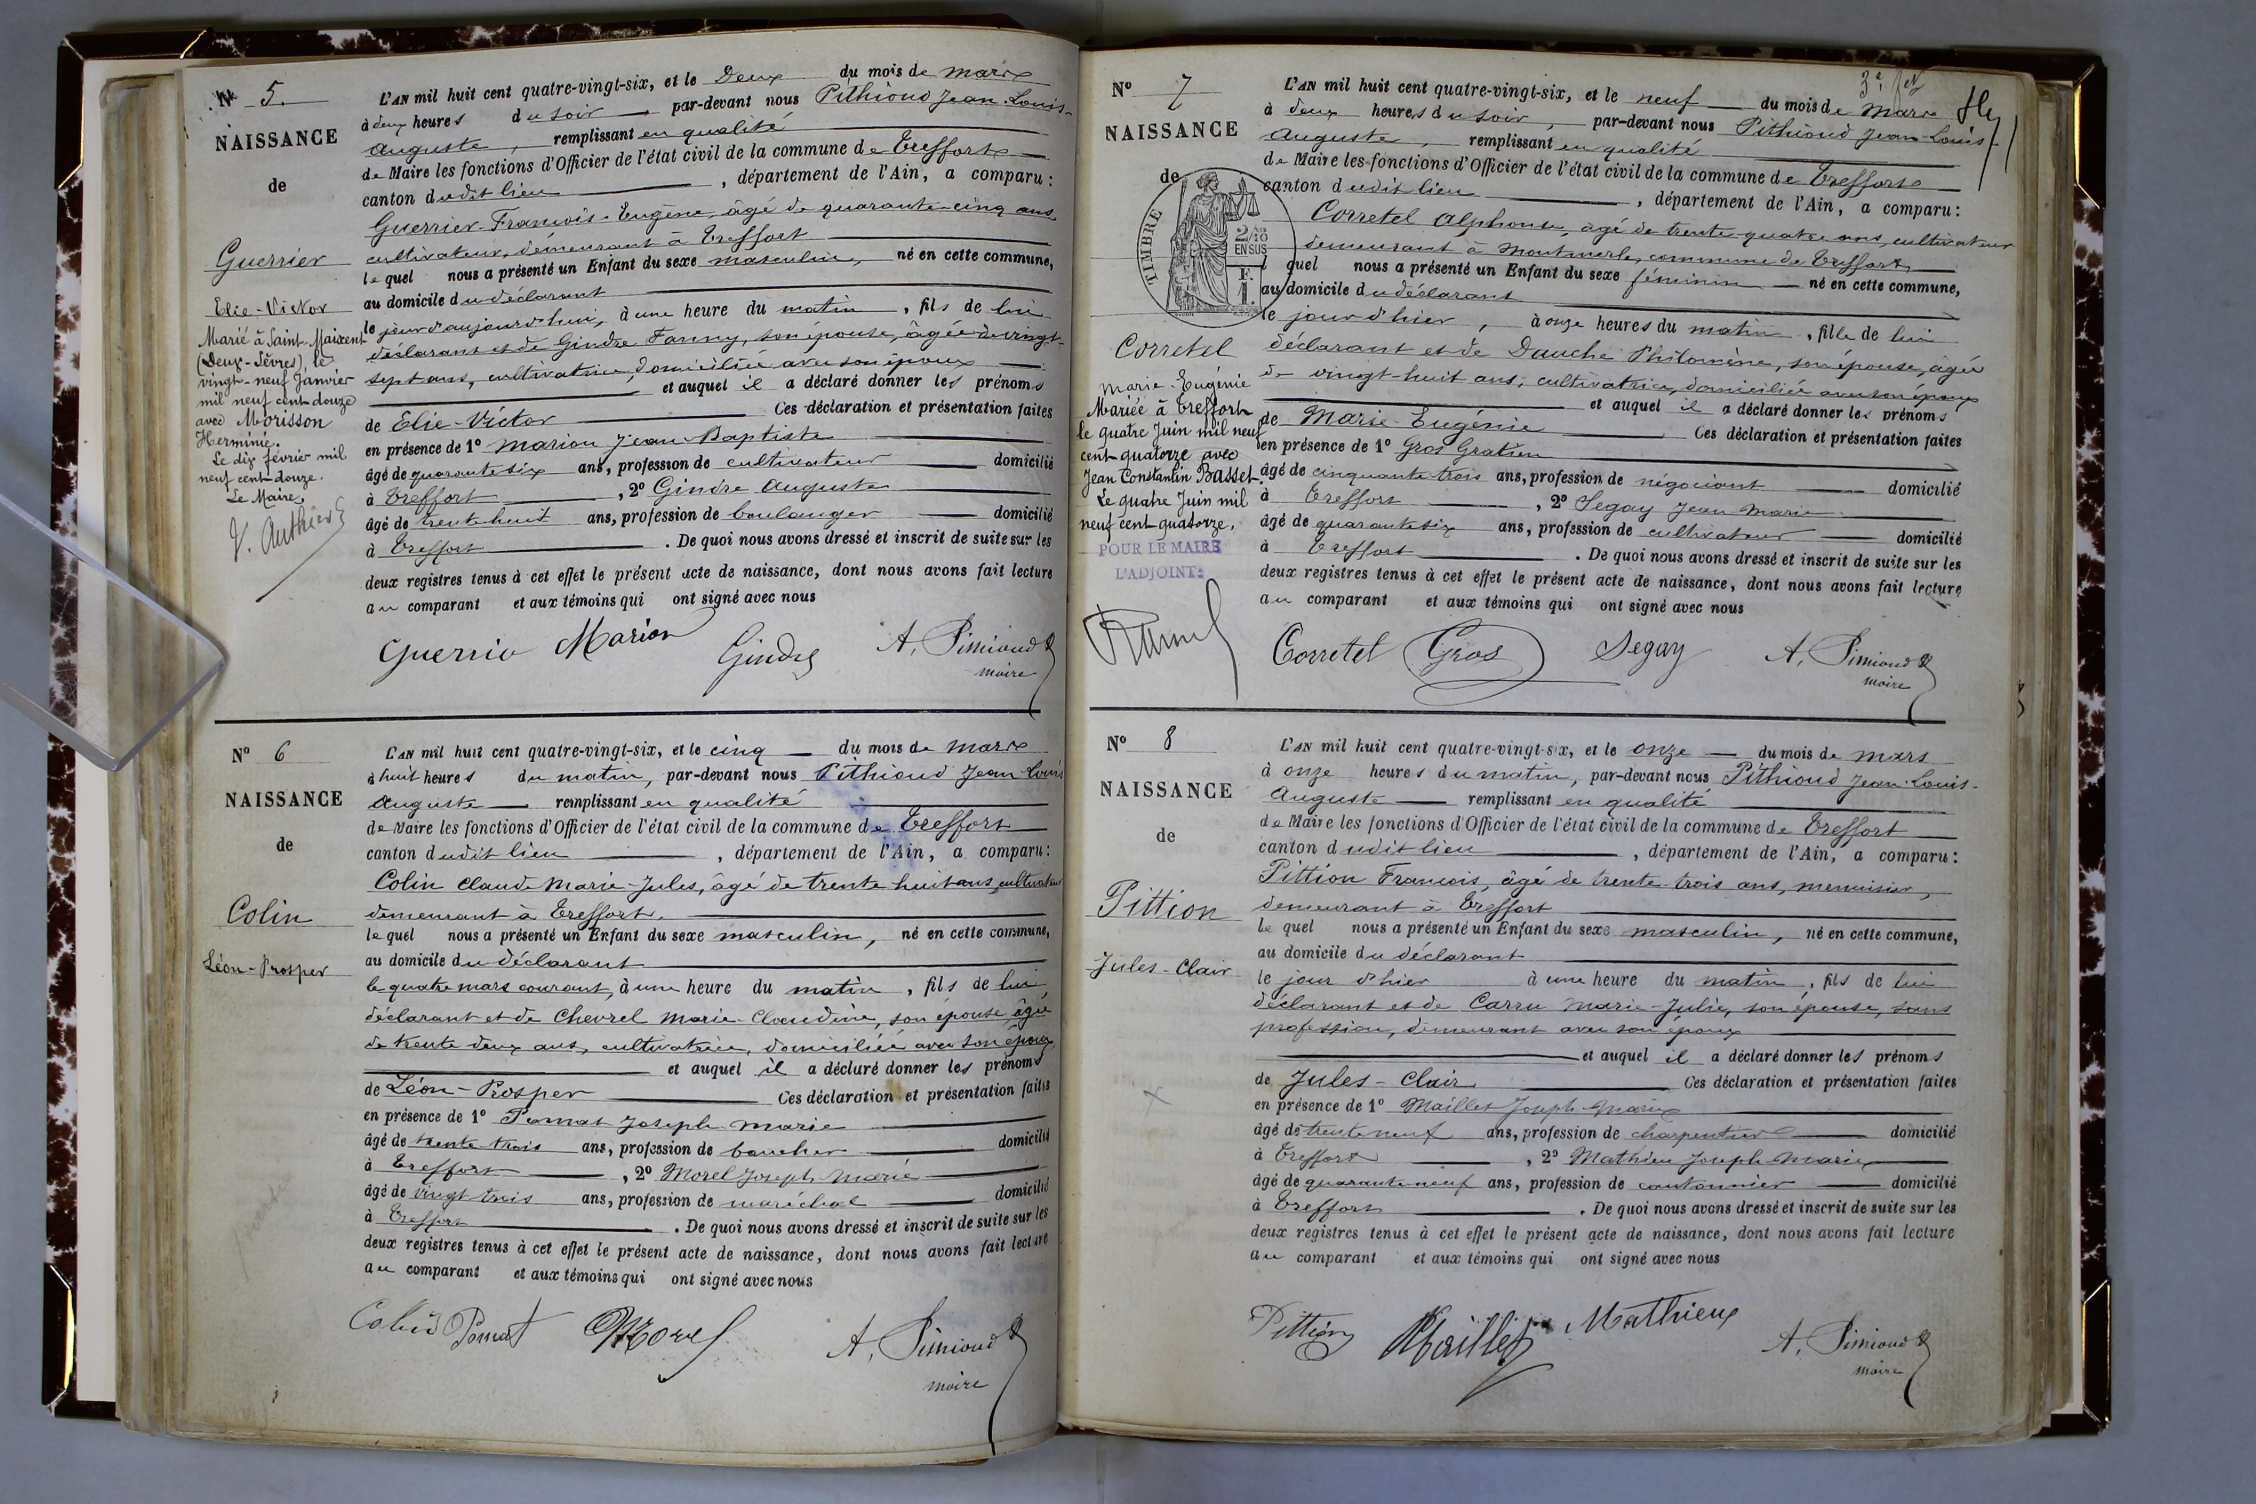 N° 5.
NAISSANCE
de
Guerrier
Elie-Victor
Marié à Saint-Maixent
(Deux-Sèvres), le
vingt-neuf Janvier
mil neuf cent douze
avec Morisson
Herminie.
Le dix février mil
neuf cent douze.
Le Maire,
V. Authier
L'AN mil huit cent quatre-vingt-six, et le Deux du mois de mars
à deux heures du soir, par-devant nous Pithioud Jean-Louis-
Auguste, remplissant en qualité
de Maire les fonctions d'Officier de l'état civil de la commune de Treffort
canton dudit lieu, département de l'Ain, a comparu:
Guerrier François-Eugène, âgé de quarante-cinq ans
cultivateur, demeurant à Treffort
lequel nous a présenté un Enfant du sexe masculin, né en cette commune,
au domicile du déclarant
le jour d'aujourd'hui, à une heure du matin, fils de lui
déclarant et de Gindre Fanny, son épouse, âgée de vingt-
sept ans, cultivatrice, domiciliée avec son époux
et auquel il a déclaré donner les prénoms
de Elie-Victor Ces déclaration et présentation faites
en présence de 1° Marion Jean-Baptiste
âgé de quarante six ans, profession de cultivateur domicilié
à Treffort, 2° Gindre Auguste
âgé de trente huit ans, profession de boulanger domicilié
à Treffort. De quoi nous avons dressé et inscrit de suite sur les
deux registres tenus à cet effet le présent acte de naissance, dont nous avons fait lecture
au comparant et aux témoins qui ont signé avec nous
Guerrier Marion Gindre A. Pithioud
maire
N° 6
NAISSANCE
de
Colin
Léon-Prosper
L'AN mil huit cent quatre-vingt-six, et le cinq du mois de mars
à huit heures du matin, par-devant nous Pithioud Jean Louis
Auguste remplissant en qualité
de Maire les fonctions d'Officier de l'état civil de la commune de Treffort
canton dudit lieu, département de l'Ain, a comparu:
Colin Claude Marie-Jules, âgé de trente huit ans, cultivateur
demeurant à Treffort.
lequel nous a présenté un Enfant du sexe masculin, né en cette commune,
au domicile du déclarant
le quatre mars courant, à une heure du matin, fils de lui,
déclarant et de Chevrel Marie-Claudine, son épouse, âgée
de trente deux ans, cultivatrice, domiciliée avec son époux
et auquel il a déclaré donner les prénoms
de Léon-Prosper Ces déclaration et présentation faites
en présence de 1° Pomat Joseph Marie
âgé de trente trois ans, profession de boucher domicilié
à Treffort, 2° Morel Joseph Marie
âgé de vingt trois ans, profession de maréchal domicilié
à Treffort. De quoi nous avons dressé et inscrit de suite sur les
deux registres tenus à cet effet le présent acte de naissance, dont nous avons fait lecture
au comparant et aux témoins qui ont signé avec nous
Colin Pomat Morel A. Pithioud
maire
N° 7
NAISSANCE
de
TIMBRE
2/10
EN SUS
F.
1.
Corretel
Marie-Eugénie
Mariée à Treffort
le quatre Juin mil neuf
cent quatorze avec
Jean Constantin Basset.
Le quatre Juin mil
neuf cent quatorze,
POUR LE MAIRE
L'ADJOINT:
L'AN mil huit cent quatre-vingt-six, et le neuf du mois de mars
à deux heures du soir, par-devant nous Pithioud Jean-Louis-
Auguste, remplissant en qualité
de Maire les fonctions d'Officier de l'état civil de la commune de Treffort
canton dudit lieu, département de l'Ain, a comparu:
Corretel Alphonse, âgé de trente-quatre ans, cultivateur
demeurant à Montmerle, commune de Treffort
lequel nous a présenté un Enfant du sexe féminin né en cette commune,
au domicile du déclarant
le jour d'hier, à onze heures du matin, fille de lui
déclarant et de Dauche Philomène, son épouse, âgée
de vingt-huit ans, cultivatrice, domiciliée avec son époux
et auquel il a déclaré donner les prénoms
de Marie-Eugénie Ces déclaration et présentation faites
en présence de 1° Gros Gratien
âgé de cinquante trois ans, profession de négociant domicilié
à Treffort, 2° Segay Jean Marie
âgé de quarante six ans, profession de cultivateur domicilié
à Treffort. De quoi nous avons dressé et inscrit de suite sur les
deux registres tenus à cet effet le présent acte de naissance, dont nous avons fait lecture
au comparant et aux témoins qui ont signé avec nous
Corretel Gros Segay A. Pithioud
maire
N° 8
NAISSANCE
de
Pittion
Jules-Clair
L'AN mil huit cent quatre-vingt-six, et le onze du mois de mars
à onze heures du matin, par-devant nous Pithioud Jean-Louis-
Auguste remplissant en qualité
de Maire les fonctions d'Officier de l'état civil de la commune de Treffort
canton dudit lieu, département de l'Ain, a comparu:
Pittion François, âgé de trente-trois ans, menuisier,
demeurant à Treffort
lequel nous a présenté un Enfant du sexe masculin, né en cette commune,
au domicile du déclarant
le jour d'hier à une heure du matin, fils de lui
déclarant et de Carru Marie-Julie, son épouse, sans
profession, demeurant avec son époux
et auquel il a déclaré donner les prénoms
de Jules-Clair Ces déclaration et présentation faites
en présence de 1° Maillet Joseph-Marie
âgé de trente neuf ans, profession de charpentier domicilié
à Treffort, 2° Mathieu Joseph Marie
âgé de quarante neuf ans, profession de cantonnier domicilié
à Treffort. De quoi nous avons dressé et inscrit de suite sur les
deux registres tenus à cet effet le présent acte de naissance, dont nous avons fait lecture
au comparant et aux témoins qui ont signé avec nous
Pittion Maillet Mathieux A. Pithioud
maire